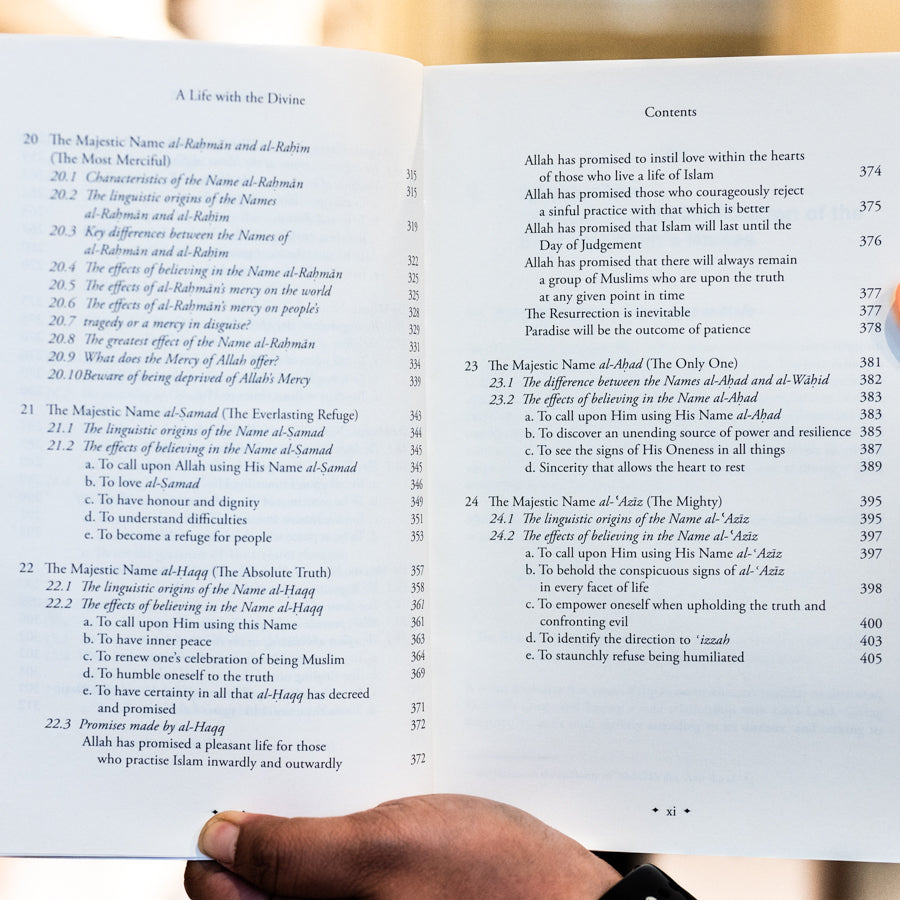 A Life with the Divine
20 The Majestic Name al-Raḥmān and al-Raḥīm
(The Most Merciful) 315
20.1 Characteristics of the Name al-Raḥmān 315
20.2 The linguistic origins of the Names
al-Raḥmān and al-Raḥīm 319
20.3 Key differences between the Names of
al-Raḥmān and al-Raḥīm 322
20.4 The effects of believing in the Name al-Raḥmān 325
20.5 The effects of al-Raḥmān's mercy on the world 325
20.6 The effects of al-Raḥmān's mercy on people's 328
20.7 tragedy or a mercy in disguise? 329
20.8 The greatest effect of the Name al-Raḥmān 331
20.9 What does the Mercy of Allah offer? 334
20.10 Beware of being deprived of Allah's Mercy 339
21 The Majestic Name al-Ṣamad (The Everlasting Refuge) 343
21.1 The linguistic origins of the Name al-Ṣamad 344
21.2 The effects of believing in the Name al-Ṣamad 345
a. To call upon Allah using His Name al-Ṣamad 345
b. To love al-Ṣamad 346
c. To have honour and dignity 349
d. To understand difficulties 351
e. To become a refuge for people 353
22 The Majestic Name al-Ḥaqq (The Absolute Truth) 357
22.1 The linguistic origins of the Name al-Ḥaqq 358
22.2 The effects of believing in the Name al-Ḥaqq 361
a. To call upon Him using this Name 361
b. To have inner peace 363
c. To renew one's celebration of being Muslim 364
d. To humble oneself to the truth 369
e. To have certainty in all that al-Ḥaqq has decreed
and promised 371
22.3 Promises made by al-Ḥaqq 372
Allah has promised a pleasant life for those
who practise Islam inwardly and outwardly 372
Contents
Allah has promised to instil love within the hearts
of those who live a life of Islam 374
Allah has promised those who courageously reject
a sinful practice with that which is better 375
Allah has promised that Islam will last until the
Day of Judgement 376
Allah has promised that there will always remain
a group of Muslims who are upon the truth
at any given point in time 377
The Resurrection is inevitable 377
Paradise will be the outcome of patience 378
23 The Majestic Name al-Aḥad (The Only One) 381
23.1 The difference between the Names al-Aḥad and al-Wāḥid 382
23.2 The effects of believing in the Name al-Aḥad 383
a. To call upon Him using His Name al-Aḥad 383
b. To discover an unending source of power and resilience 385
c. To see the signs of His Oneness in all things 387
d. Sincerity that allows the heart to rest 389
24 The Majestic Name al-ʿAzīz (The Mighty) 395
24.1 The linguistic origins of the Name al-ʿAzīz 395
24.2 The effects of believing in the Name al-ʿAzīz 397
a. To call upon Him using His Name al-ʿAzīz 397
b. To behold the conspicuous signs of al-ʿAzīz
in every facet of life 398
c. To empower oneself when upholding the truth and
confronting evil 400
d. To identify the direction to ʿizzah 403
e. To staunchly refuse being humiliated 405
xi